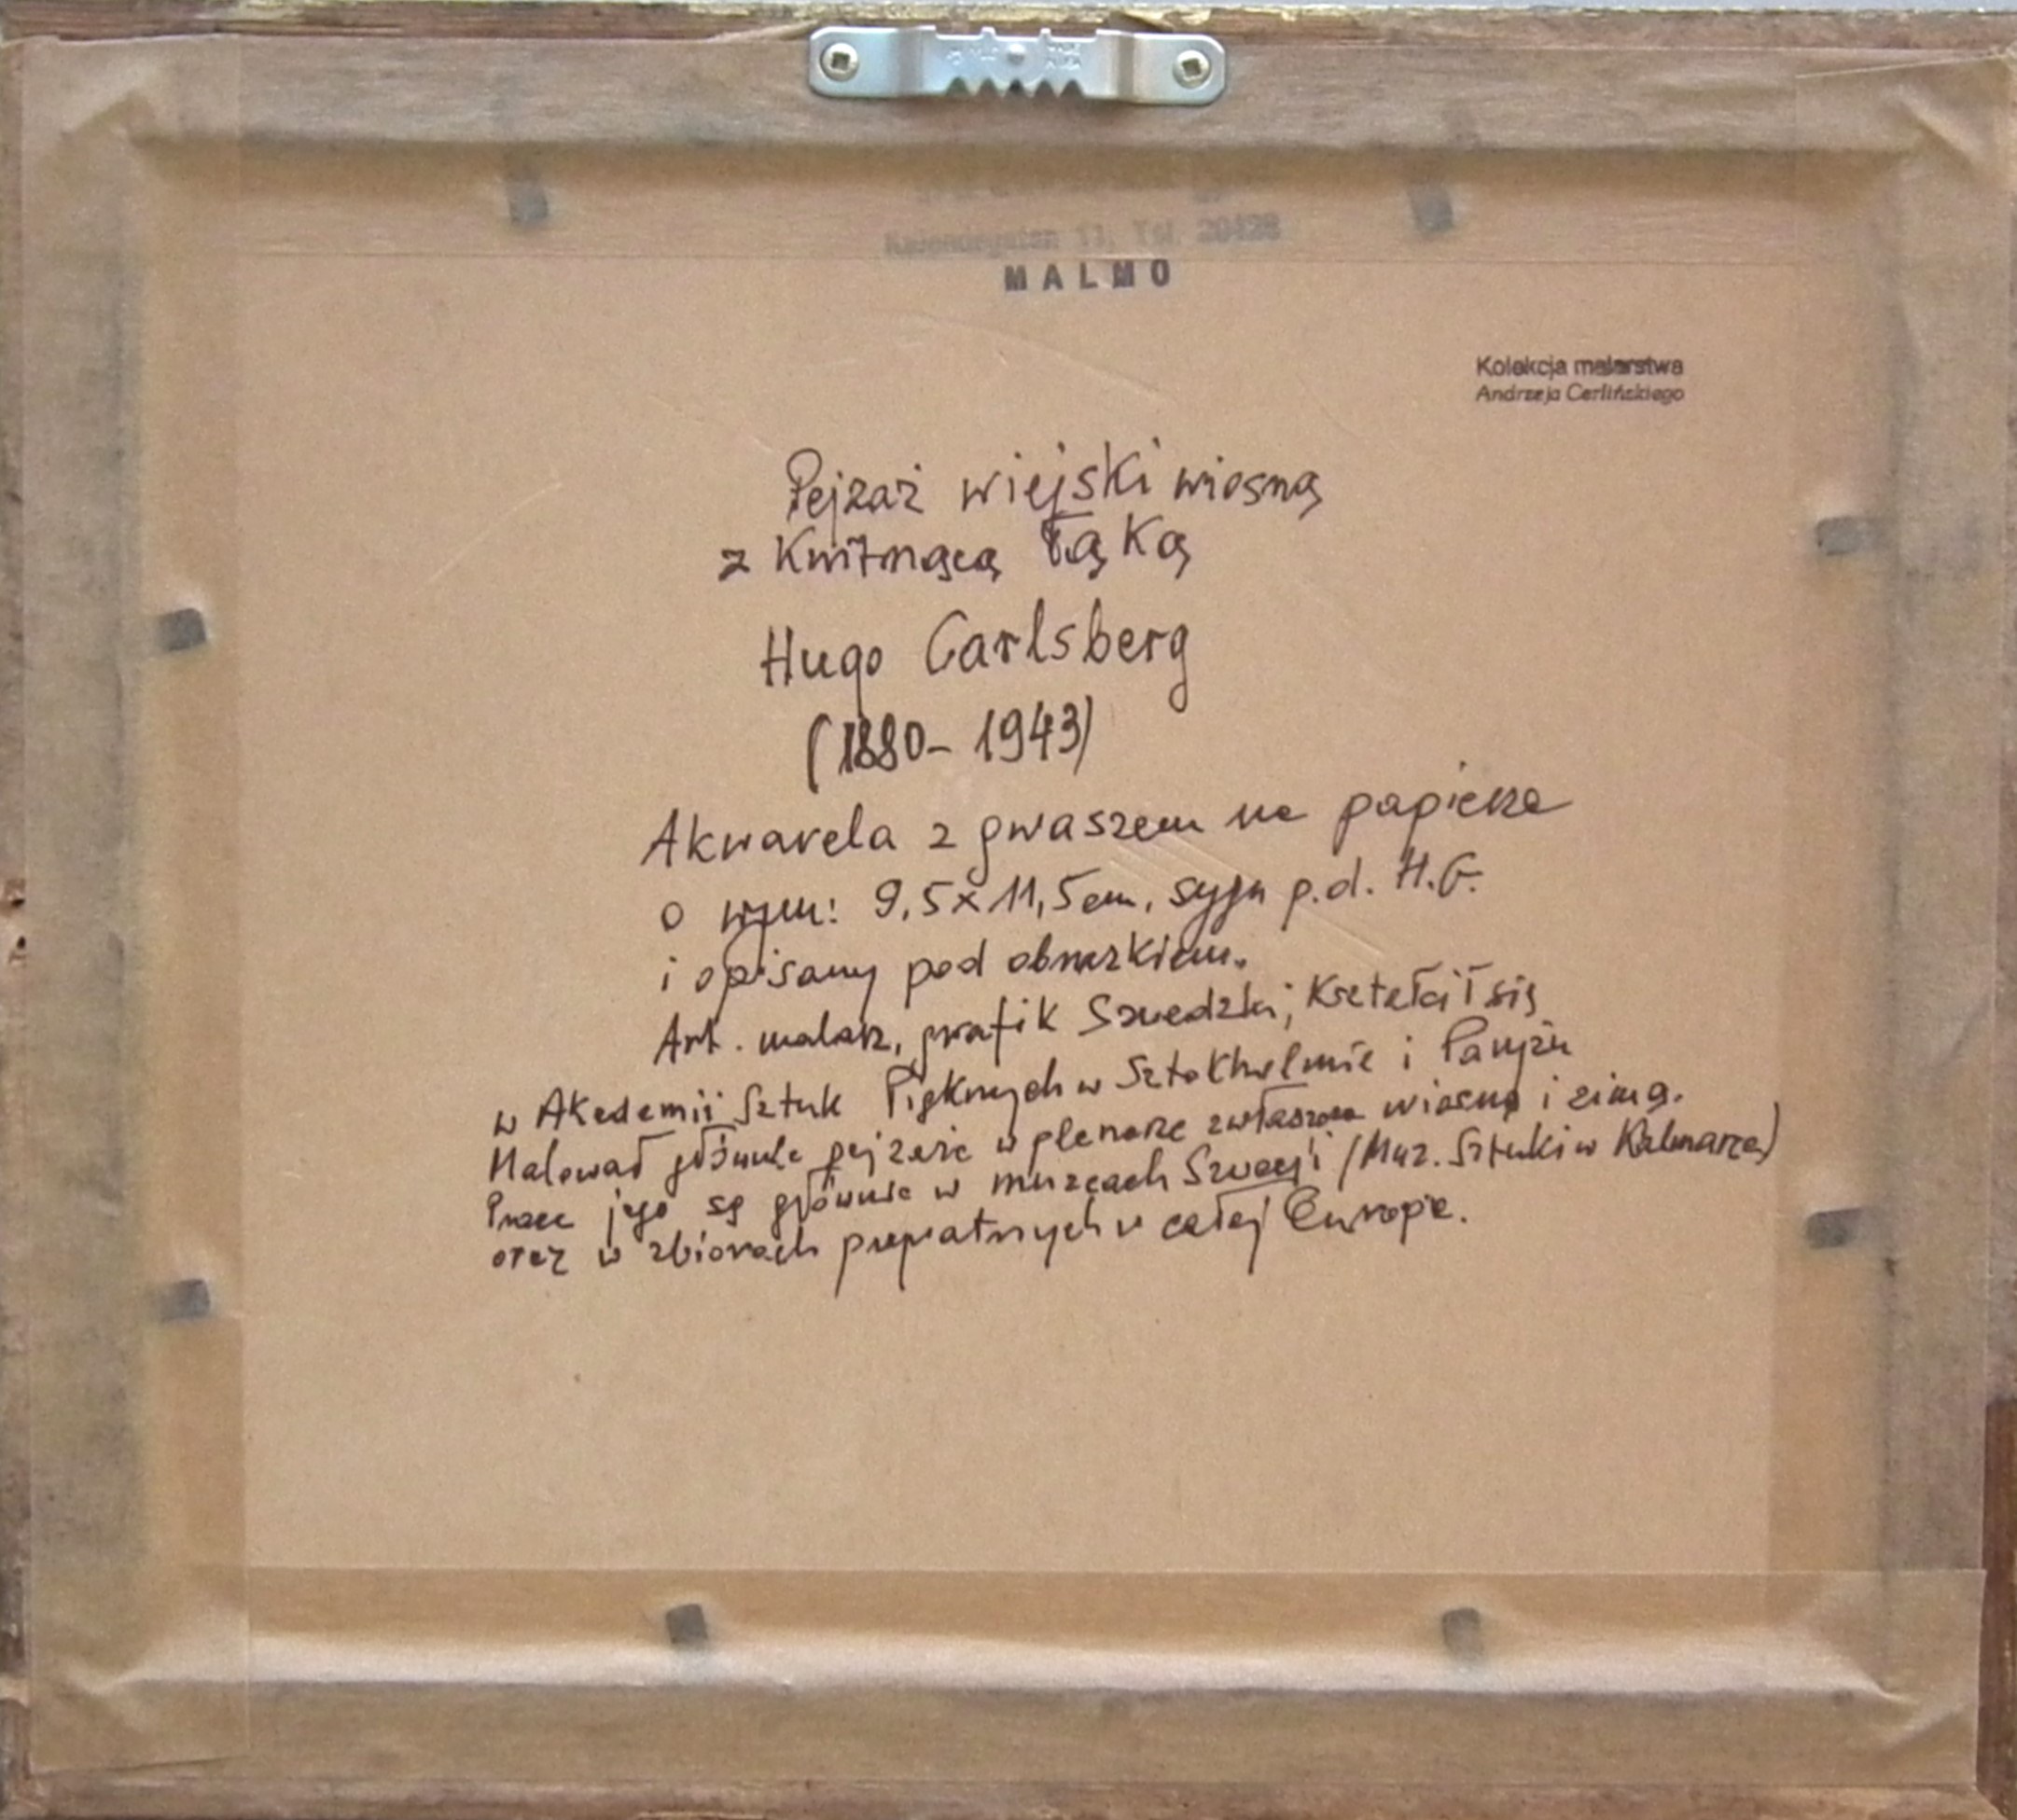 11, Tel. 20428
MALMO
Kolekcja malarstwa
Andrzeja Cerlińskiego
Pejzaż wiejski wiosną
z Kwitnącą łąką
Hugo Carlsberg
(1880-1943)
Akwarela z gwaszem na papierze
o wym: 9,5x11,5cm, sygn p.d. H.C.
i opisany pod obrazkiem.
Art. malarz, grafik Szwedzki; Kształcił się
w Akademii Sztuk Pięknych w Sztokholmie i Paryżu
Malował głównie pejzaże w plenerze zwłaszcza wiosną i zimą.
Prace jego są głównie w muzeach Szwecji (Muz. Sztuki w Kalmarze)
oraz w zbiorach prywatnych w całej Europie.